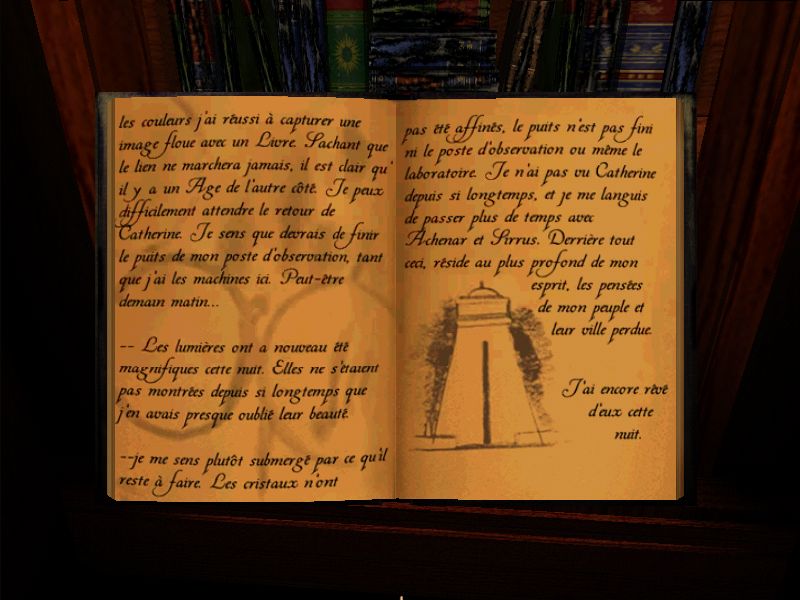 les couleurs j'ai réussi à capturer une
image floue avec un Livre. Sachant que
le lien ne marchera jamais, il est clair qu'
il y a un Âge de l'autre côté. Je peux
difficilement attendre le retour de
Catherine. Je sens que devrais de finir
le puits de mon poste d'observation, tant
que j'ai les machines ici. Peut-être
demain matin...
-- Les lumières ont a nouveau été
magnifiques cette nuit. Elles ne s'étaient
pas montrées depuis si longtemps que
j'en avais presque oublié leur beauté.
--je me sens plutôt submergé par ce qu'il
reste à faire. Les cristaux n'ont
pas été affinés, le puits n'est pas fini
ni le poste d'observation ou même le
laboratoire. Je n'ai pas vu Catherine
depuis si longtemps, et je me languis
de passer plus de temps avec
Achenar et Sirrus. Derrière tout
ceci, réside au plus profond de mon
esprit, les pensées
de mon peuple et
leur ville perdue.
J'ai encore rêvé
d'eux cette
nuit.